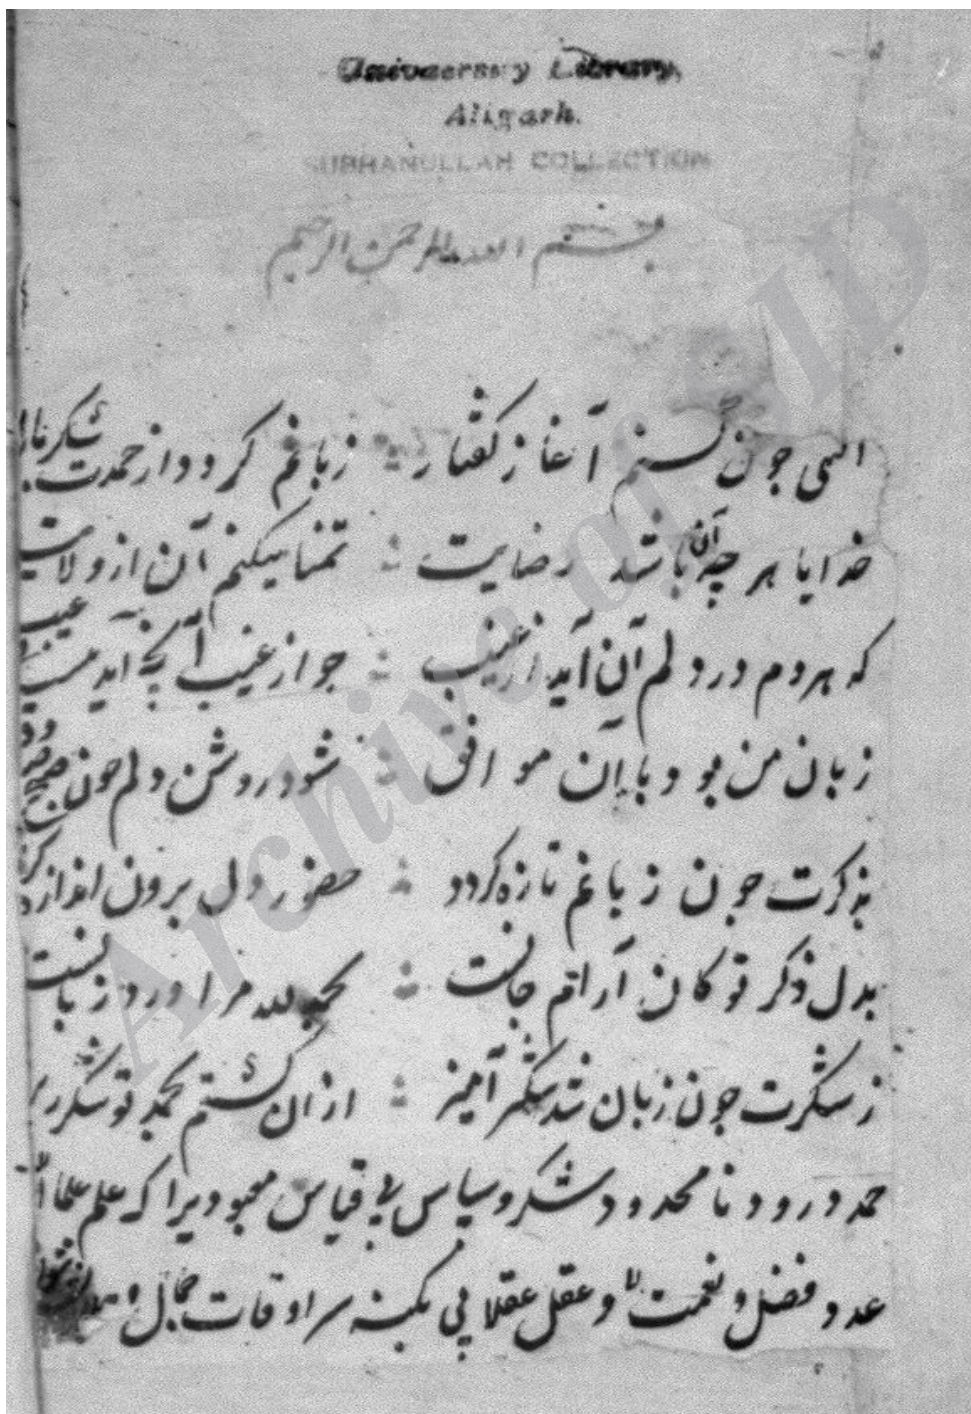 University Library,
Aligarh.
SUBHANULLAH COLLECTION
بسم الله الرحمن الرحیم
الهی چون کنم آغاز گفتار زبانم گردد از حمدت شکر
خدایا هر چه آن باشد رضایت تمنا میکنم آن از ولایت
که هر دم در دلم آن آید از غیب چو از غیب آنچه آید عیب
زبان من بود با آن موافق شود روشن دلم چون صبح
بذکرت چون زبانم تازه گردد حضور دل برون اندازه
بدل ذکر تو کان آرام جانست بحمدلله مرا ورد زبانست
ز شکرت چون زبان شد شکر آمیز ازان گشتم بحمد تو شکر
حمد و درود نامحدود و شکر و سپاس بی قیاس معبودیرا که علم علما
عدد فضل و نعمت و عقل عقلا پی بکنه سراوقات جمال و
Archive of JD